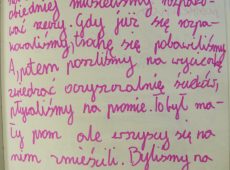 obiedniej musieliśmy rozpako-
wać rzeczy. Gdy już się rozpa-
kowaliśmy, trochę się pobawiliśmy
A potem poszliśmy na wycieczkę
zwiedzać oczywiście
pływaliśmy na promie. To był ma-
ły prom ale wszyscy się na
niem zmieścili. Byliśmy na